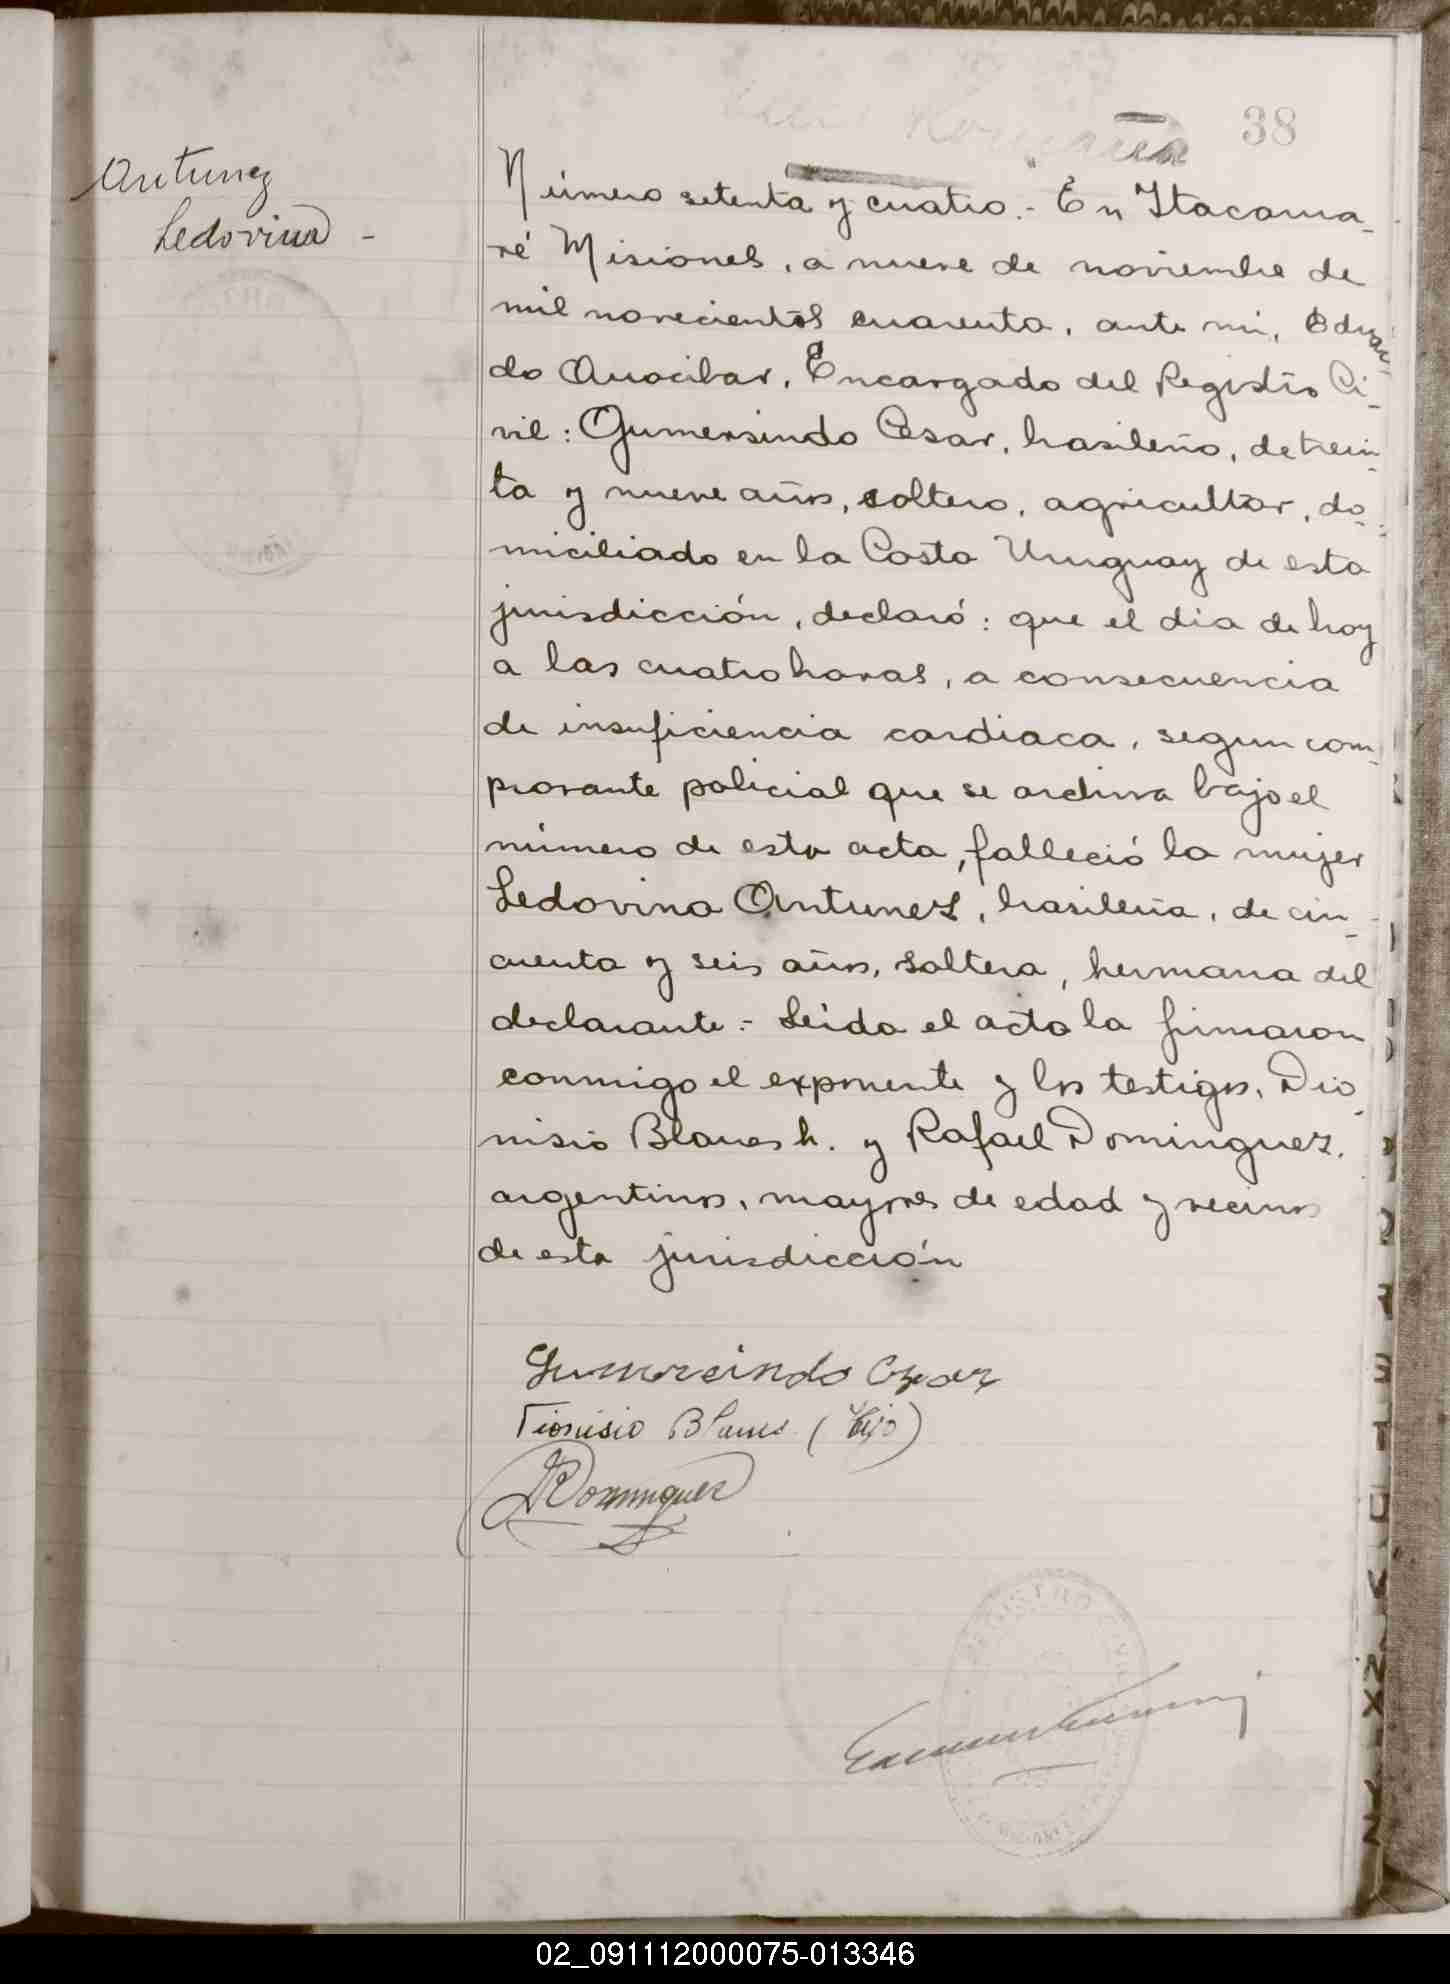 38
Antunez
Ledovina -
Número setenta y cuatro.- En Itacarua-
ré Misiones, a nueve de noviembre de
mil novecientos cuarenta, ante mi, Eduar
do Arrocibar, Encargado del Registro Ci-
vil: Gumersindo Cesar, brasileño, de trein-
ta y nueve años, soltero, agricultor, do-
miciliado en la Costa Uruguay de esta
jurisdicción, declaró: que el dia de hoy
a las cuatro horas, a consecuencia
de insuficiencia cardiaca, segun com-
provante policial que se archiva bajo el
número de esta acta, falleció la mujer
Ledovina Antunez, brasileña, de cin-
cuenta y seis años, soltera, hermana del
declarante.- Leida el acta la firmaron
conmigo el exponente y los testigos, Dio-
nisio Blanes h. y Rafael Dominguez,
argentinos, mayores de edad y vecinos
de esta jurisdicción
Gumercindo Cezar
Dionisio Blanes (hijo)
RDominguez
REGISTRO CIVIL
02_091112000075-013346